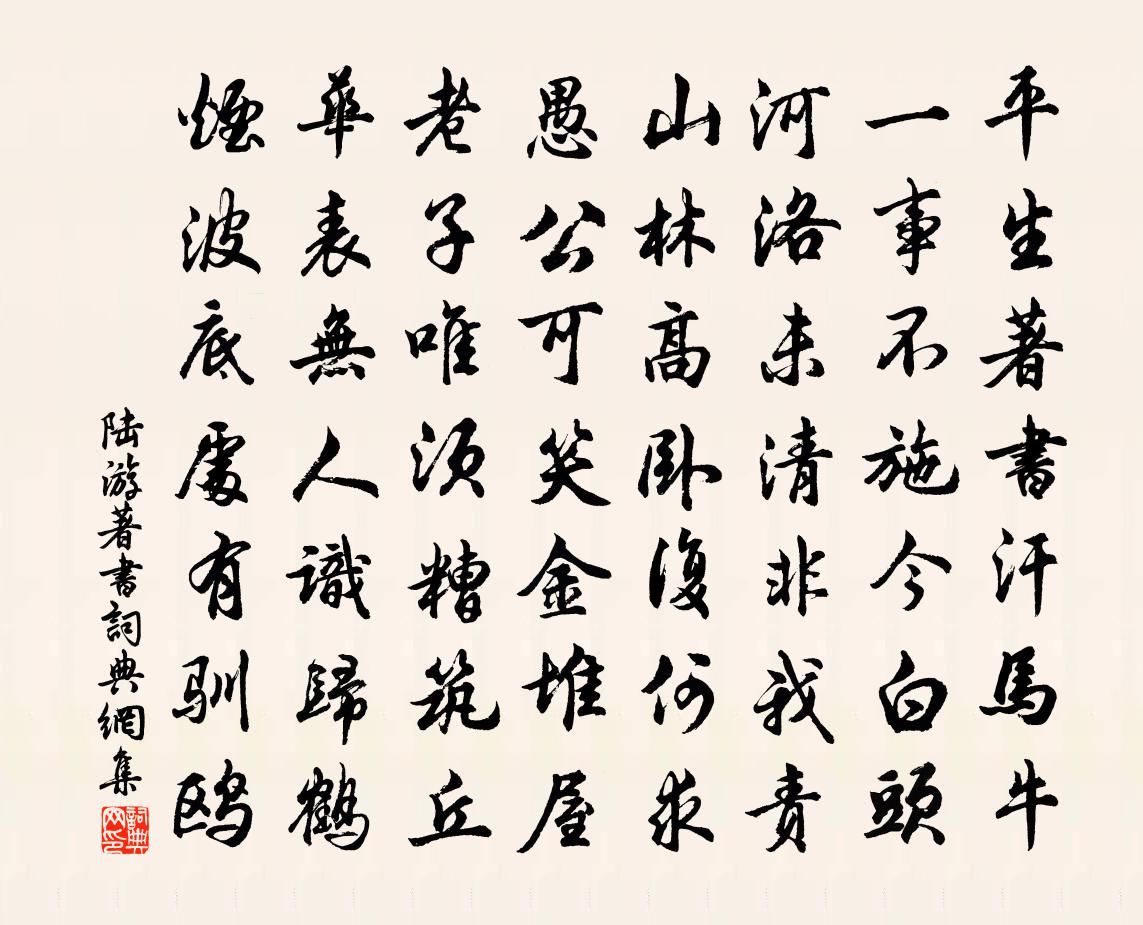 平生著書汗馬牛
一事不施今白頭
河洛未清非我責
山林高臥復何求
愚公可笑金堆屋
老子唯須糟筑丘
華表無人識歸鶴
煙波底處有馴鸥
陆游著書詞典網集
詞典网印